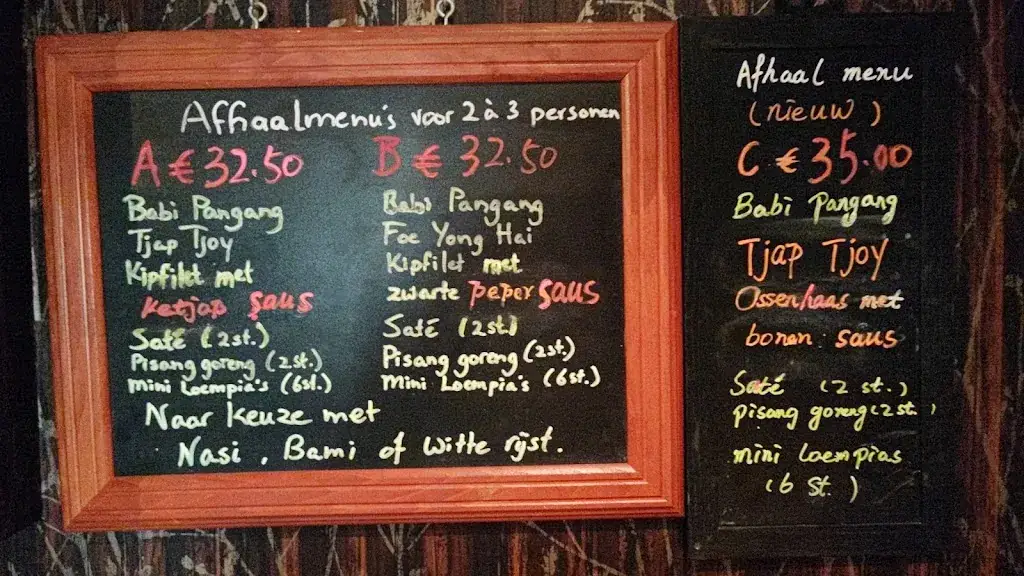 Afhaalmenu's voor 2 à 3 personen
A € 32.50
Babi Pangang
Tjap Tjoy
Kipfilet met
Ketjap saus
Saté (2 st.)
Pisang goreng (2 st.)
Mini Loempia's (6 st.)
B € 32.50
Babi Pangang
Foe Yong Hai
Kipfilet met
zwarte peper saus
Saté (2 st)
Pisang goreng (2 st.)
Mini Loempia's (6 st.)
Naar Keuze met
Nasi, Bami of Witte rijst.
Afhaal menu
(nieuw)
C € 35.00
Babi Pangang
Tjap Tjoy
Ossenhaas met
bonen saus
Saté (2 st.)
pisang goreng (2 st.)
mini loempias
(6 st.)